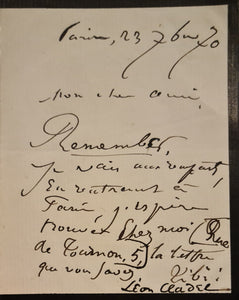 Paris, 23 7bre 70
Mon cher ami,
Remember,
Je vais aux remparts,
En rentrant à
Paris, j'espère
trouver chez moi, Rue
de Tournon, 5, la lettre
que vous savez,
Léon Cladel